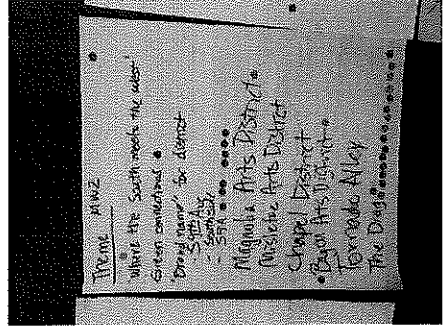 Theme
"Where the South meets the West"
Green connections
"Brand name" for district
- South Side
- SSA
Magnolia Arts District
Mistletoe Arts District
Chapel District
Bayou Arts District
Tornado Alley
The Drag